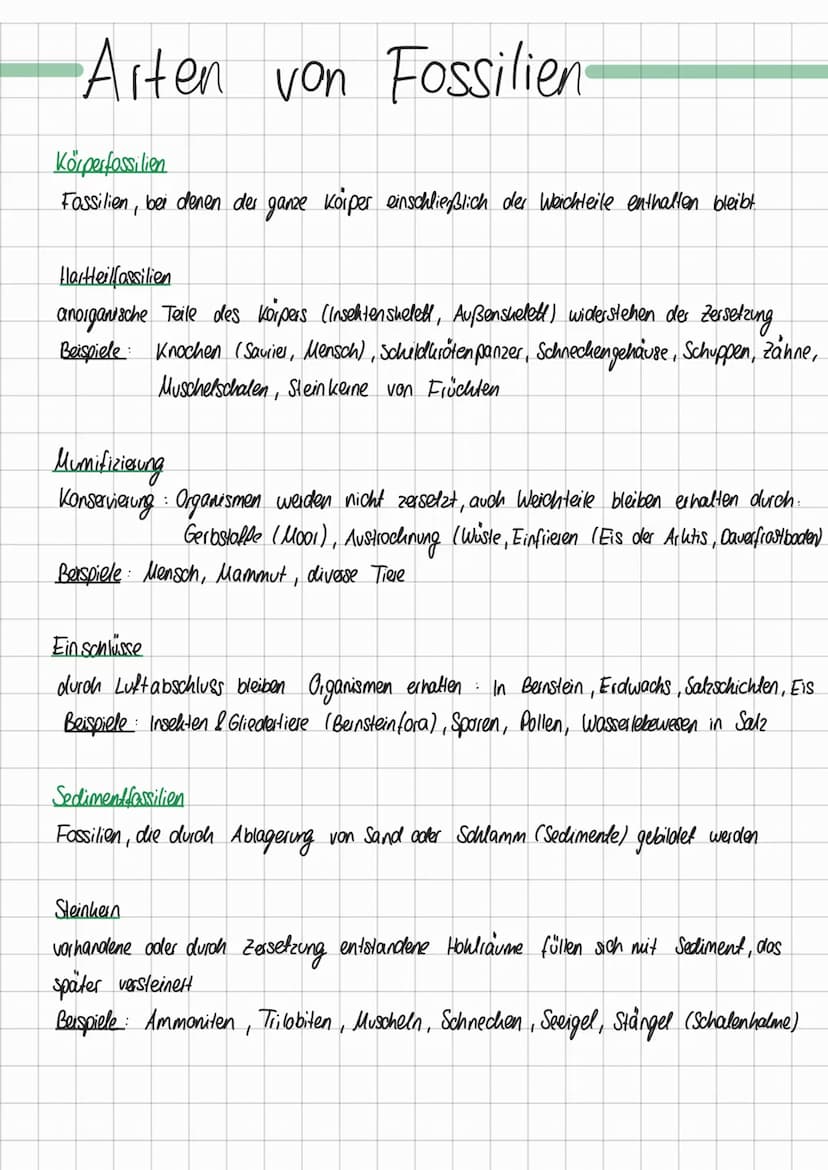 Arten von Fossilien
Körperfossilien
Fossilien, bei denen der ganze Körper einschließlich der Weichteile enthalten bleibt
Hartteilfossilien
anorganische Teile des Körpers (Insektenskelett, Außenskelett) widerstehen der Zersetzung
Beispiele: Knochen (Saurier, Mensch), Schildkrötenpanzer, Schneckengehäuse, Schuppen, Zähne,
Muschelschalen, Steinkerne von Früchten
Mumifizierung
Konservierung: Organismen werden nicht zersetzt, auch Weichteile bleiben erhalten durch:
Gerbstoffe (Moor), Austrocknung (Wüste, Einfrieren (Eis der Arktis, Dauerfrostboden)
Beispiele: Mensch, Mammut, diverse Tiere
Einschlüsse
durch Luftabschluss bleiben Organismen erhalten: In Bernstein, Erdwachs, Salzschichten, Eis
Beispiele: Insekten & Gliedertiere (Bernsteinfora), Sporen, Pollen, Wasserlebewesen in Salz
Sedimentfossilien
Fossilien, die durch Ablagerung von Sand oder Schlamm (Sedimente) gebildet werden
Steinkern
vorhandene oder durch Zersetzung entstandene Hohlräume füllen sich mit Sediment, das
später versteinert
Beispiele: Ammoniten, Trilobiten, Muscheln, Schnecken, Seeigel, Stängel (Schalenhalme)